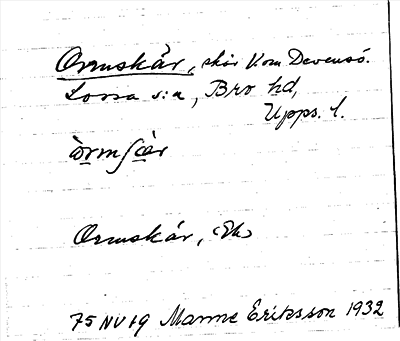 Ormskär, skär V omÄvensö.
Lossa s:n, Bro hd,
Upps. l.
òrmʃɛ̀r
Ormskär, Ek
75 NV 19 Manne Eriksson 1932